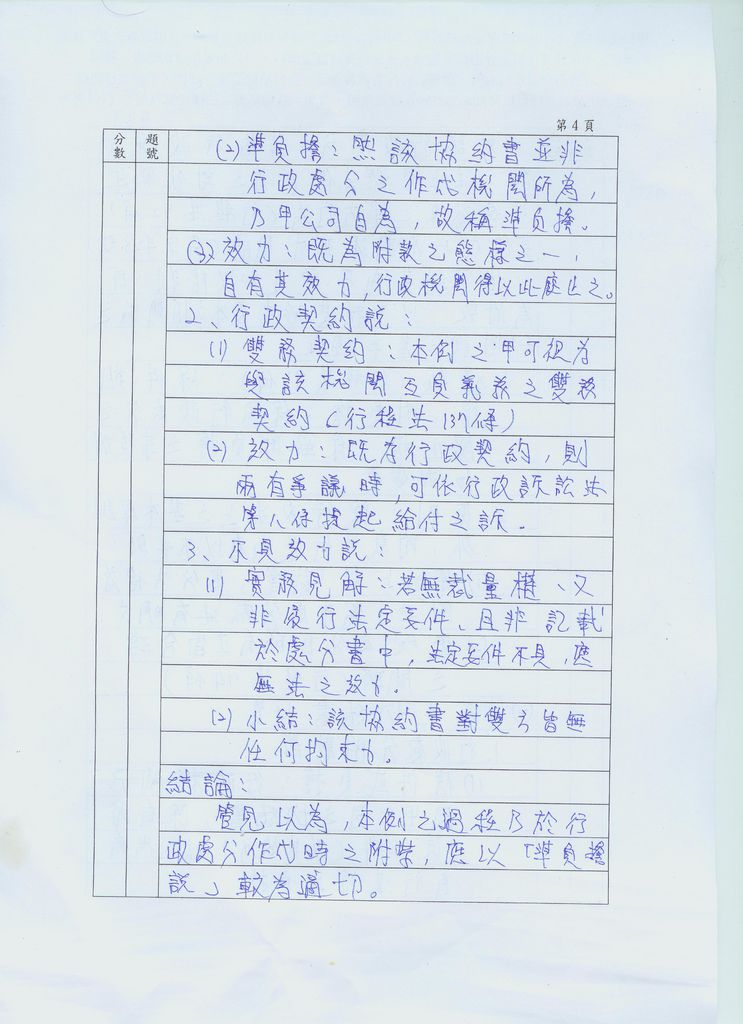 第4頁
分數
題號
(2)準負擔：然該協約書並非
行政處分之作成機關所為，
乃甲公司自為，故稱準負擔。
(3)效力：既為附款之態樣之一，
自有其效力，行政機關得以此廢止之。
2、行政契約說：
(1) 雙務契約：本例之甲可視為
與該機關互負義務之雙務
契約(行程法137條)
(2) 效力：既為行政契約，則
兩有爭議時，可依行政訴訟法
第八條提起給付之訴。
3、不具效力說：
(1) 實務見解：若無裁量權、又
非履行法定要件、且非記載
於處分書中，法定要件不具，應
無法之效力。
(2) 小結：該協約書對雙方皆無
任何拘束力。
結論：
管見以為，本例之過程乃於行
政處分作成時之附帶，應以「準負擔
說」較為適切。